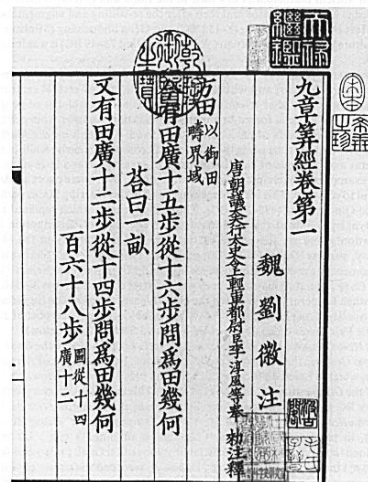 天祿繼鑑
九章筭經卷第一
魏劉徽注
唐朝議大夫行太史令上輕車都尉臣李淳風等奉 勑注釋
乾隆御覽之寶
方田
以御田
疇界域
今有田廣十五步從十六步問爲田幾何
荅曰一畝
又有田廣十二步從十四步問爲田幾何
百六十八步
圖從十四
廣十二